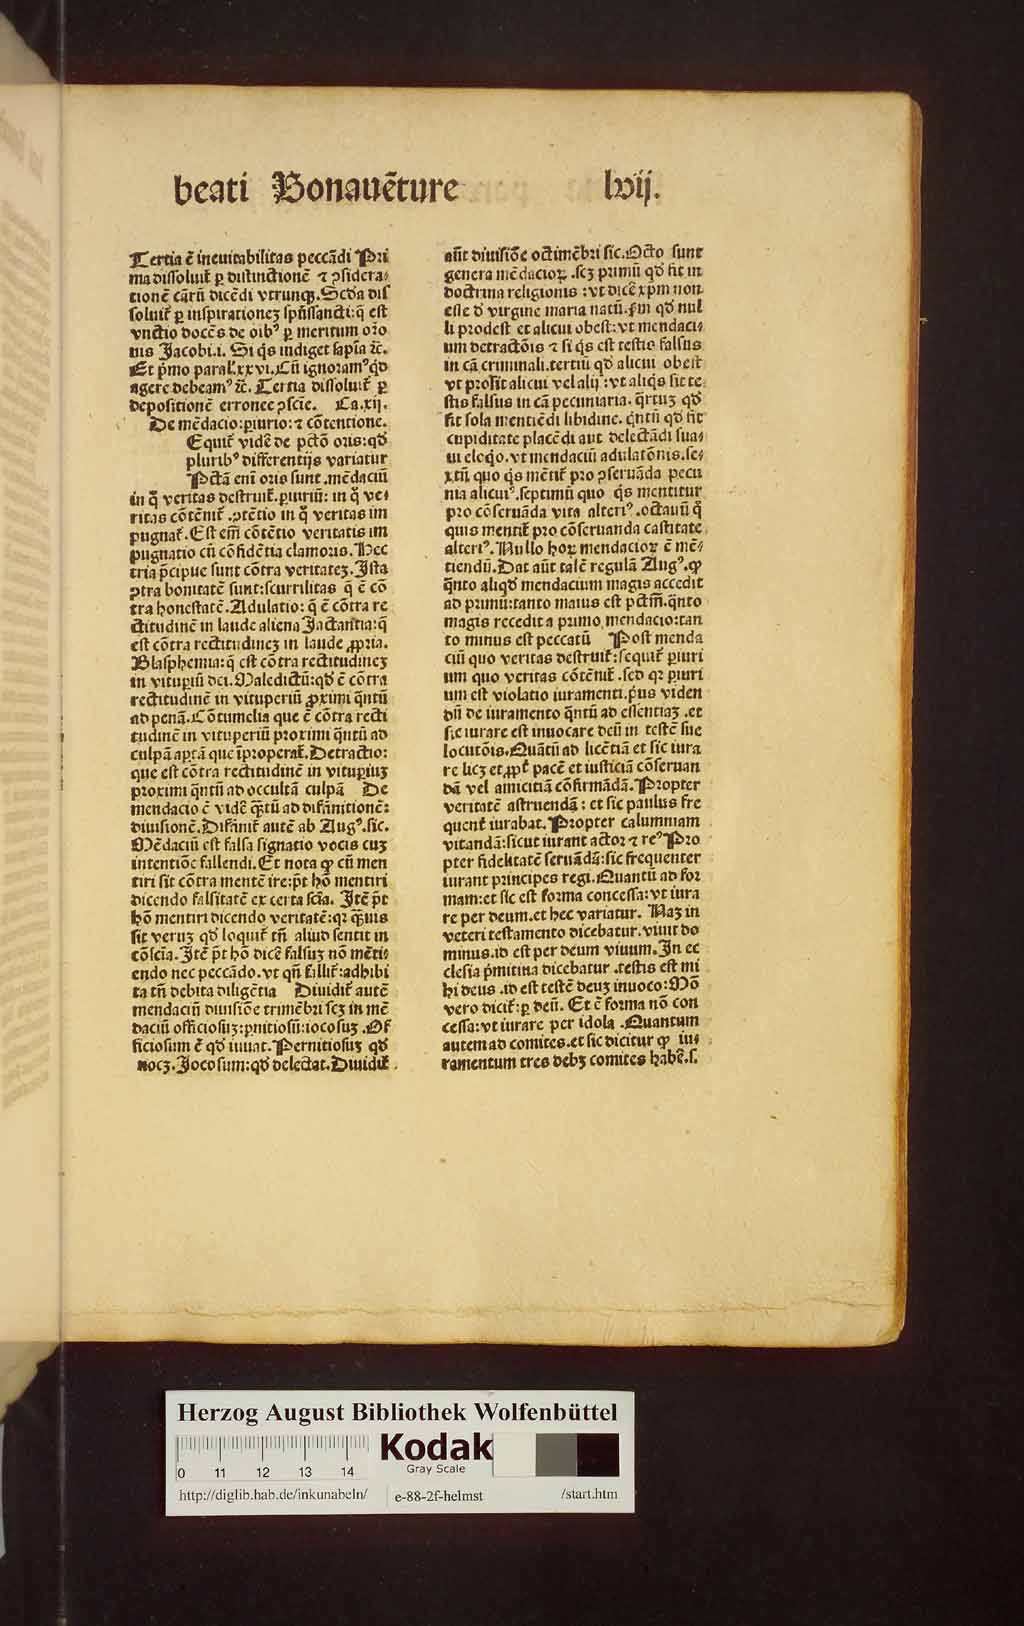 beati Bonauēture lvij.
Tertia ē ineuitabilitas peccādi Pri
ma dissoluit̄ ꝑ distinctionē ⁊ ꝯsidera⸗
tionē earū dicēdi vtrunqꝫ. Scd̓a dis
soluit̄ ꝑ inspirationeꝫ sp̄ūssancti: q̄ est
vnctio docēs de oībꝰ ꝑ meritum orō
nis Jacobi.i. Si q̇s indiget sapīa ⁊c̄.
Et p̄mo paral̓.xxvi. Cū ignoramꝰ qd̓
agere debeamꝰ ⁊c̄. Tertia dissoluit̄ ꝑ
depositionē erronee ꝯscīe. Ca.xij.
De mēdacio: ꝑiurio: ⁊ cōtentione.
Equit̄ vidē de pctō oris: qd̓
pluribꝰ differentijs variatur
Pctā enī oris sunt .mēdaciū
in q̊ veritas destruit̄. ꝑiuriū: in q̊ ve⸗
ritas cōtēnit̄. ꝯtētio in q̊ veritas im
pugnat̄. Est em̄ cōtētio veritatis im
pugnatio cū cōfidētia clamoris. Hec
tria p̄cipue sunt cōtra veritateꝫ. Ista
ꝯtra bonitatē sunt: scurrilitas q̄ ē cō
tra honestatē. Adulatio: q̄ ē cōtra re
ctitudinē in laude aliena Jactantia: q̄
est cōtra rectitudineꝫ in laude ꝓpria.
Blasphemia: q̄ est cōtra rectitudineꝫ
in vituꝑiū dei. Maledictū: qd̓ ē cōtra
rectitudinē in vituperiū ꝓximi q̄ntū
ad penā. Cōtumelia que ē cōtra recti
tudinē in vituperiū proximi q̄ntū ad
culpā aꝑtā que īproperat̄. Detractio:
que est cōtra rectitudinē in vituꝑiuꝫ
proximi q̄ntū ad occultā culpā De
mendacio ē vidē q̄tū ad difānitionē:
diuisionē. Difānit̄ autē ab Augꝰ. sic.
Mēdaciū est falsa signatio vocis cuꝫ
intentiōe fallendi. Et nota ꝙ cū men
tiri sit cōtra mentē ire: pt̄ hō mentiri
dicendo falsitatē ex certa scīa. Itē pt̄
hō mentiri dicendo veritatē: qꝛ q̄uis
sit veruꝫ qd̓ loquit̄ tn̄ aliud sentit in
cōscīa. Itē pt̄ hō dicē falsuꝫ nō mēti⸗
endo nec peccādo. vt qn̄ fallit̄: adhibi
ta tn̄ debita diligētia Diuidit̄ autē
mendaciū diuisiōe trimēbri scꝫ in mē
daciū officiosuꝫ: ꝑnitiosū: iocosuꝫ. Of
ficiosum ē qd̓ iuuat. Pernitiosuꝫ qd̓
nocꝫ. Jocosum: qd̓ delectat. Diuidit̄
aūt diuisiōe octimēbri sic. Octo sunt
genera mēdacioꝝ .scꝫ primū qd̓ fit in
doctrina religionis: vt dicē xp̄m non
esse d̓ virgine maria natū. sc̄dm qd̓ nul
li prodest et alicui obest: vt mendaci⸗
um detractōis ⁊ si q̇s est testis falsus
in cā criminali. tertiū qd̓ alicui obest
vt prosit alicui vel alij: vt aliq̇s sit te⸗
stis falsus in cā pecuniaria. q̄rtuꝫ qd̓
fit sola mentiēdi libidine. q̇ntū qd̓ fit
cupiditate placēdi aut delectādi sua⸗
ui eloq̇o. vt mendaciū adulatōnis. se⸗
xtū quo q̇s mētit̄ pro ꝯseruāda pecu
nia alicuiꝰ. septimū quo q̇s mentitur
pro cōseruāda vita alteriꝰ. octauū q̊
quis mentit̄ pro cōseruanda castitate
alteriꝰ. Nullo hoꝝ mendacioꝝ ē mē⸗
tiendū. Dat aūt talē regulā Augꝰ. ꝙ
q̄nto aliqd̓ mendacium magis accedit
ad primū: tanto maius est pctm̄. q̄nto
magis recedit a primo mendacio: tan
to minus est peccatū Post menda
ciū quo veritas destruit̄: sequit̄ ꝑiuri
um quo veritas cōtēnit̄. sed qꝛ ꝑiuri
um est violatio iuramenti. p̄us viden
dū de iuramento q̄ntū ad essentiaꝫ .et
sic iurare est inuocare deū in testē sue
locutōis. Quātū ad licētiā et sic iura
re licꝫ et ꝓpt̄ pacē et iusticiā cōseruan
dā vel amicitiā cōfirmādā. Propter
veritatē astruendā: et sic paulus fre
quent̄ iurabat. Propter calumniam
vitandā: sicut iurant actor ⁊ reꝰ Pro
pter fidelitatē seruādā: sic frequenter
iurant principes regi. Quantū ad for
mam: et sic est forma concessa: vt iura
re per deum. et hec variatur. Naꝫ in
veteri testamento dicebatur. viuit do
minus. id est per deum viuum. In ec
clesia p̄mitiua dicebatur .testis est mi
hi deus .id est testē deuꝫ inuoco: Mō
vero dicit̄: ꝑ deū. Et ē forma nō con
cessa: vt iurare per idola .Quantum
autem ad comites. et sic dicitur ꝙ iu⸗
ramentum tres debꝫ comites habē.s.
Herzog August Bibliothek Wolfenbüttel
0 11 12 13 14
Kodak
Gray Scale
http://diglib.hab.de/inkunabeln/ e-88-2f-helmst /start.htm